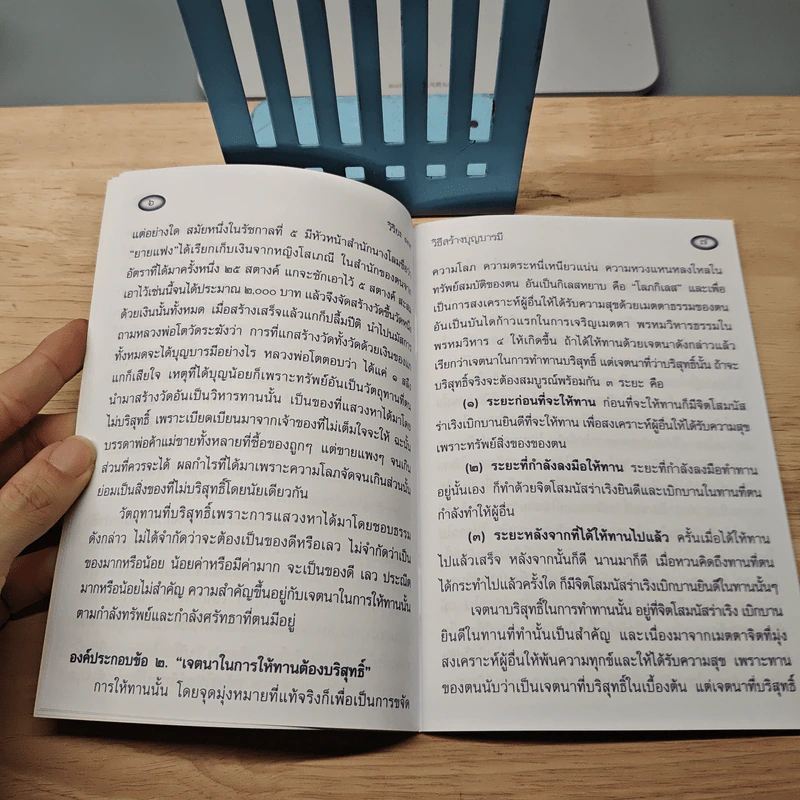 ๖
วิริยะ
แต่อย่างใด สมัยหนึ่งในรัชกาลที่ ๕ มีหัวหน้าสำนักนางโลมชื่อว่า
“ยายแฟง”ได้เรียกเก็บเงินจากหญิงโสเภณี ในสำนักของตนจาก
อัตราที่ได้มาครั้งหนึ่ง ๒๕ สตางค์ แกจะชักเอาไว้ ๕ สตางค์ สะสม
เอาไว้เช่นนี้จนได้ประมาณ ๒,๐๐๐ บาท แล้วจึงจัดสร้างวัดขึ้นวัดหนึ่ง
ด้วยเงินนั้นทั้งหมด เมื่อสร้างเสร็จแล้วแกก็ปลื้มปีติ นำไปนมัสการ
ถามหลวงพ่อโตวัดระฆังว่า การที่แกสร้างวัดทั้งวัดด้วยเงินของแก
ทั้งหมดจะได้บุญบารมีอย่างไร หลวงพ่อโตตอบว่า ได้แค่ ๑ สลึง
แกก็เสียใจ เหตุที่ได้บุญน้อยก็เพราะทรัพย์อันเป็นวัตถุทานที่ตน
นำมาสร้างวัดอันเป็นวิหารทานนั้น เป็นของที่แสวงหาได้มาโดย
ไม่บริสุทธิ์ เพราะเบียดเบียนมาจากเจ้าของที่ไม่เต็มใจจะให้ ฉะนั้น
บรรดาพ่อค้าแม่ขายทั้งหลายที่ซื้อของถูกๆ แต่ขายแพงๆ จนเกิน
ส่วนที่ควรจะได้ ผลกำไรที่ได้มาเพราะความโลภจัดจนเกินส่วนนั้น
ย่อมเป็นสิ่งของที่ไม่บริสุทธิ์โดยนัยเดียวกัน
วัตถุทานที่บริสุทธิ์เพราะการแสวงหาได้มาโดยชอบธรรม
ดังกล่าว ไม่ได้จำกัดว่าจะต้องเป็นของดีหรือเลว ไม่จำกัดว่าเป็น
ของมากหรือน้อย น้อยค่าหรือมีค่ามาก จะเป็นของดี เลว ประณีต
มากหรือน้อยไม่สำคัญ ความสำคัญขึ้นอยู่กับเจตนาในการให้ทานนั้น
ตามกำลังทรัพย์และกำลังศรัทธาที่ตนมีอยู่
องค์ประกอบข้อ ๒. “เจตนาในการให้ทานต้องบริสุทธิ์”
การให้ทานนั้น โดยจุดมุ่งหมายที่แท้จริงก็เพื่อเป็นการขจัด
วิธีสร้างบุญบารมี
๗
ความโลภ ความตระหนี่เหนียวแน่น ความหวงแหนหลงใหลใน
ทรัพย์สมบัติของตน อันเป็นกิเลสหยาบ คือ “โลภกิเลส” และเพื่อ
เป็นการสงเคราะห์ผู้อื่นให้ได้รับความสุขด้วยเมตตาธรรมของตน
อันเป็นบันไดก้าวแรกในการเจริญเมตตา พรหมวิหารธรรมใน
พรหมวิหาร ๔ ให้เกิดขึ้น ถ้าได้ให้ทานด้วยเจตนาดังกล่าวแล้ว
เรียกว่าเจตนาในการทำทานบริสุทธิ์ แต่เจตนาที่ว่าบริสุทธิ์นั้น ถ้าจะ
บริสุทธิ์จริงจะต้องสมบูรณ์พร้อมกัน ๓ ระยะ คือ
(๑) ระยะก่อนที่จะให้ทาน ก่อนที่จะให้ทานก็มีจิตโสมนัส
ร่าเริงเบิกบานยินดีที่จะให้ทาน เพื่อสงเคราะห์ผู้อื่นให้ได้รับความสุข
เพราะทรัพย์สิ่งของของตน
(๒) ระยะที่กำลังลงมือให้ทาน ระยะที่กำลังลงมือทำทาน
อยู่นั้นเอง ก็ทำด้วยจิตโสมนัสร่าเริงยินดีและเบิกบานในทานที่ตน
กำลังทำให้ผู้อื่น
(๓) ระยะหลังจากที่ได้ให้ทานไปแล้ว ครั้นเมื่อได้ให้ทาน
ไปแล้วเสร็จ หลังจากนั้นก็ดี นานมาก็ดี เมื่อหวนคิดถึงทานที่ตน
ได้กระทำไปแล้วครั้งใด ก็มีจิตโสมนัสร่าเริงเบิกบานยินดีในทานนั้นๆ
เจตนาบริสุทธิ์ในการทำทานนั้น อยู่ที่จิตโสมนัสร่าเริง เบิกบาน
ยินดีในทานที่ทำนั้นเป็นสำคัญ และเนื่องมาจากเมตตาจิตที่มุ่ง
สงเคราะห์ผู้อื่นให้พ้นความทุกข์และให้ได้รับความสุข เพราะทาน
ของตนนับว่าเป็นเจตนาที่บริสุทธิ์ในเบื้องต้น แต่เจตนาที่บริสุทธิ์